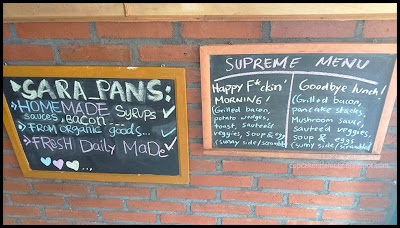 SARA_PANS:
HOMEMADE SYRUPS
sauces, BACON...
FROM ORGANIC GOODS...
FRESH DAILY MADE
SUPREME MENU
Happy F*ckin'
MORNING!
(Grilled bacon,
potato wedges,
toast, sauteed
veggies, soup & egg
(sunny side/scrambled)
Goodbye lunch!
(Grilled bacon,
pancake stacks,
Mushroom sauce,
sauteed veggies,
soup & egg
(sunny side/scrambled)